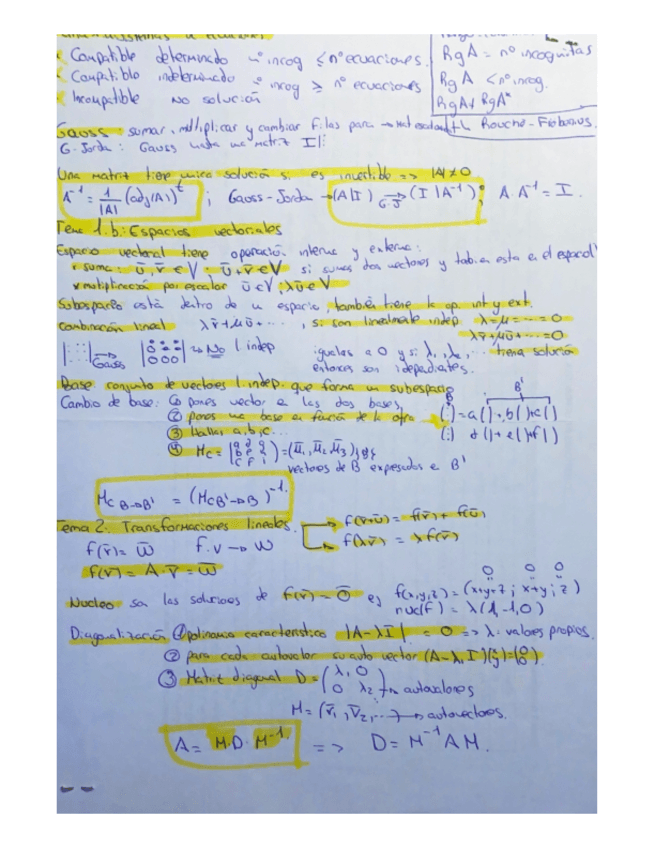 Compatible determinado nº incog ≤ nº ecuaciones.
Compatible indeterminado nº incog ≥ nº ecuaciones
Incompatible no solución
RgA = nº incognitas
RgA < nº incog.
RgA ≠ RgA*
Rouche-Frobenius.
Gauss: sumar, multiplicar y cambiar filas para → Mat escalon
G. Jorda: Gauss hasta una matriz I
Una matriz tiene unica solución si es invertible => |A| ≠ 0
A⁻¹ = 1/|A| (adj(A))ᵗ ; Gauss-Jorda → (A|I) →G-J (I|A⁻¹) ; A·A⁻¹ = I.
Tema 1.b: Espacios vectoriales
Espacio vectorial tiene operación interna y externa:
suma: ū, v̄ ∈ V · ū+v̄ ∈ V si sumas dos vectores y tabien esta en el espacio
multiplicación por escalar ū ∈ V; λū ∈ V
Subespacio está dentro de un espacio, también tiene la op. int y ext.
Combinación lineal λv̄+μū+..., si son linealmente indep. λ=μ=...=0
λv̄+μū+...=0
Gauss → No l. indep igualas a 0 y si λ₁, λ₂, ... tiene solución
entonces son independientes.
Base conjunto de vectores l. indep. que forma un subespacio
Cambio de base: ① pones vector en las dos bases, B B'
② pones una base en función de la otra ( ) = a( )+b( )+c( )
③ Hallas a, b, c... ( ) d( )+e( )+f( )
④ Mc = (ū₁, ū₂, ū₃)
vectores de B expresados en B'
Mc B→B' = (Mc B'→B)⁻¹.
Tema 2. Transformaciones lineales. f(v̄+ū) = f(v̄)+f(ū)
f(v̄) = w̄ f: V → W f(λv̄) = λf(v̄)
f(v̄) = A·v̄ = w̄
0 0 0
Nucleo son las soluciones de f(v̄) = 0̄ ej f(x,y,z) = (x+y+z; x+y; z)
nuc(f) = λ(1,-1,0)
Diagonalización ① polinomio caracteristico |A-λI| = 0 => λ = valores propios.
② para cada autovalor su auto vector (A-λ₁I)(x y)=(0 0)
③ Matriz diagonal D = (λ₁ 0 0 λ₂) → autovalores
M = (v̄₁, v̄₂, ...) → autovectores.
A = M·D·M⁻¹. => D = M⁻¹AM.